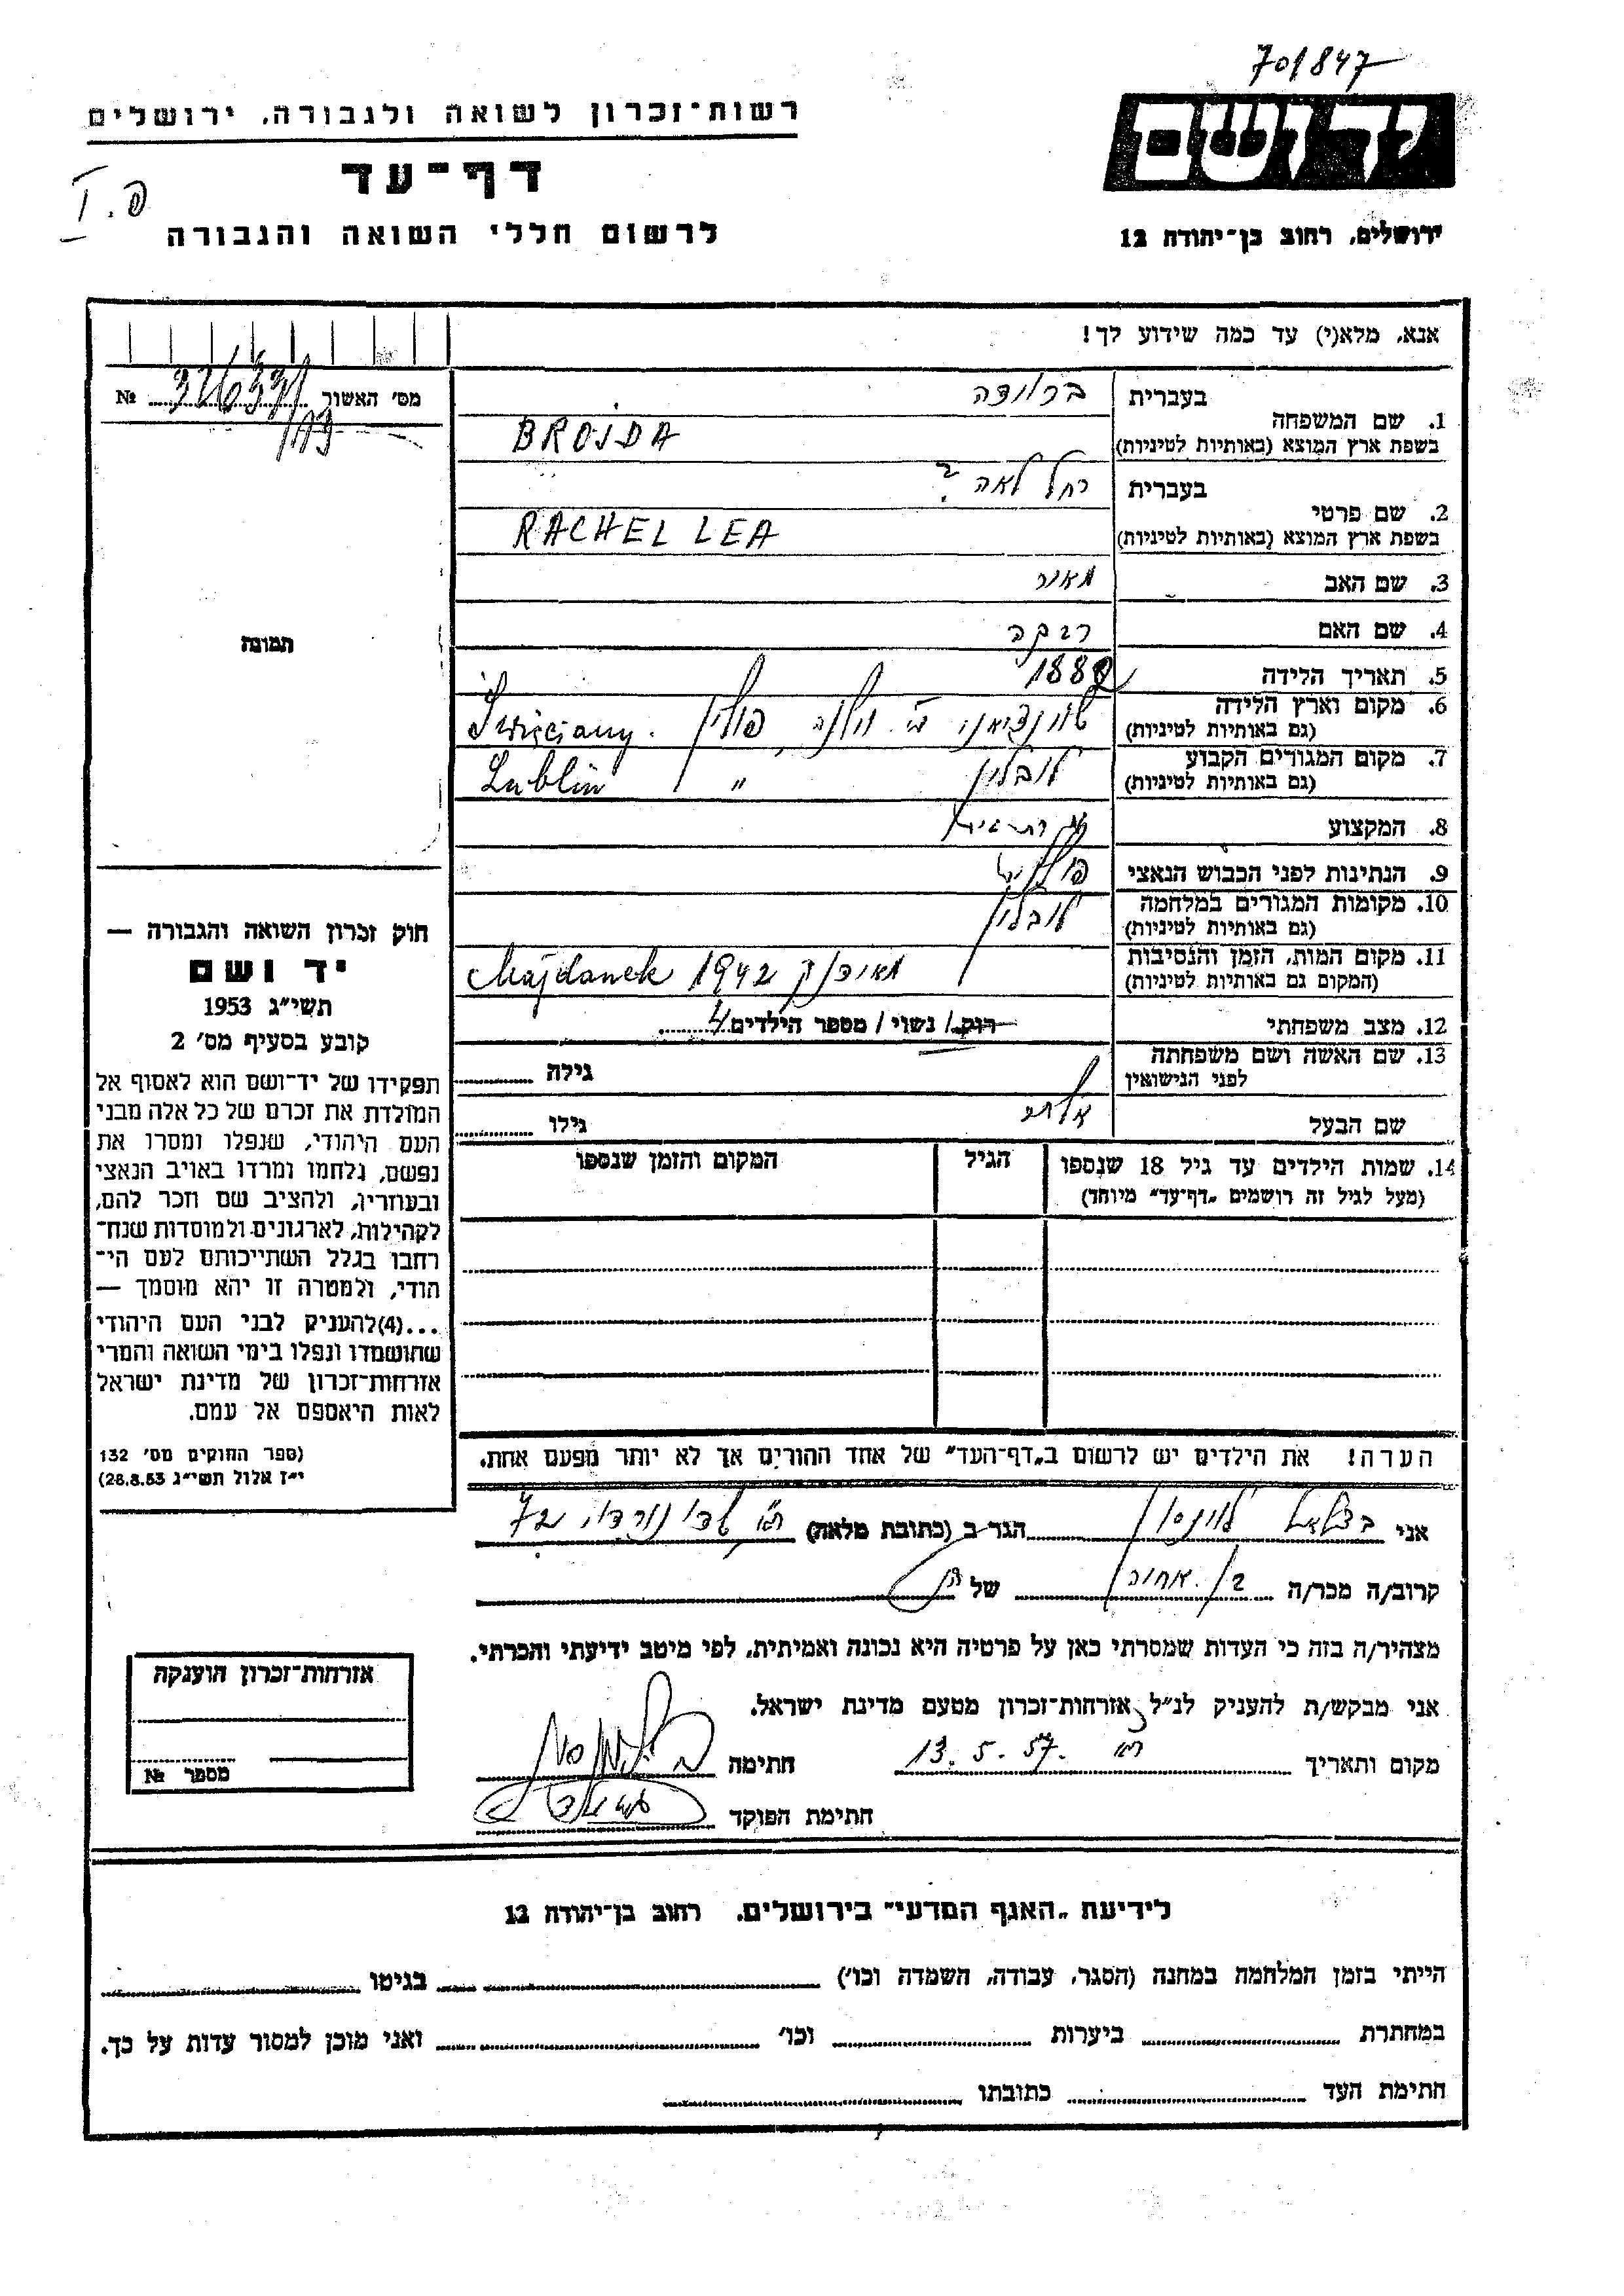 701847
רשות־זכרון לשואה ולגבורה, ירושלים
ידושם
דף־עד
פ. I
לרשום חללי השואה והגבורה
ירושלים, רחוב בן־יהודה 12
אנא, מלא(י) עד כמה שידוע לך!
מס׳ האשור №
1. שם המשפחה
בעברית ברוידה
בשפת ארץ המוצא (באותיות לטיניות) BROJDA
2. שם פרטי
בעברית רחל לאה
בשפת ארץ המוצא (באותיות לטיניות) RACHEL LEA
3. שם האב מאיר
4. שם האם רבקה
5. תאריך הלידה 1882
6. מקום וארץ הלידה
(גם באותיות לטיניות) שוונציאני ע״י וילנה, פולין. Święciany
7. מקום המגורים הקבוע
(גם באותיות לטיניות) לובלין " Lublin
8. המקצוע
9. הנתינות לפני הכבוש הנאצי
10. מקומות המגורים במלחמה
(גם באותיות לטיניות) לובלין
11. מקום המות, הזמן והנסיבות
(המקום גם באותיות לטיניות) מאידנק 1942 Majdanek
12. מצב משפחתי רוק/ נשוי/ מספר הילדים 4
13. שם האשה ושם משפחתה
לפני הנישואין גילה
שם הבעל גילו
14. שמות הילדים עד גיל 18 שנספו הגיל המקום והזמן שנספו
(מעל לגיל זה רושמים „דף־עד״ מיוחד)
הערה! את הילדים יש לרשום ב„דף־העד״ של אחד ההורים אך לא יותר מפעם אחת.
תמונה
חוק זכרון השואה והגבורה —
יד ושם
תשי״ג 1953
קובע בסעיף מס׳ 2
תפקידו של יד־ושם הוא לאסוף אל
המולדת את זכרם של כל אלה מבני
העם היהודי, שנפלו ומסרו את
נפשם, נלחמו ומרדו באויב הנאצי
ובעוזריו, ולהציב שם וזכר להם,
לקהילות, לארגונים ולמוסדות שנח־
רחבו בגלל השתייכותם לעם הי־
הודי, ולמטרה זו יהא מוסמך —
...(4)להעניק לבני העם היהודי
שהושמדו ונפלו בימי השואה והמרי
אזרחות־זכרון של מדינת ישראל
לאות היאספם אל עמם.
(ספר החוקים מס׳ 132
י״ז אלול תשי״ג 28.8.53)
אני בצלאל לוינסון הגר ב (כתובת מלאה) ת״א שד׳ נורדוי 72
קרוב/ה מכר/ה בן אחיה של הנ״ל
מצהיר/ה בזה כי העדות שמסרתי כאן על פרטיה היא נכונה ואמיתית, לפי מיטב ידיעתי והכרתי.
אני מבקש/ת להעניק לנ״ל אזרחות־זכרון מטעם מדינת ישראל.
מקום ותאריך ת״א 13.5.57. חתימה
חתימת הפוקד
אזרחות־זכרון הוענקה
מספר №
לידיעת „האגף המדעי״ בירושלים, רחוב בן־יהודה 12
הייתי בזמן המלחמה במחנה (הסגר, עבודה, השמדה וכו׳) בגיטו
במחתרת ביערות וכו׳ ואני מוכן למסור עדות על כך.
חתימת העד כתובתו